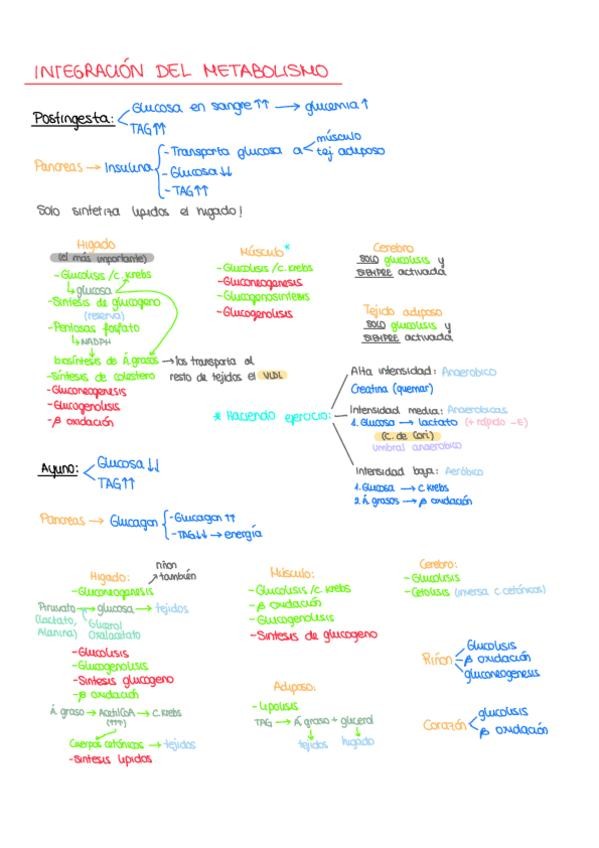 INTEGRACIÓN DEL METABOLISMO
Postingesta:
Glucosa en sangre ↑↑ → glucemia ↑
TAG ↑↑
Pancreas → Insulina
- Transporta glucosa a
músculo
tej adiposo
- Glucosa ↓↓
- TAG ↑↑
Solo sintetiza lipidos el higado!
Higado
(el más importante)
- Glucolisis / C. Krebs
↳ glucosa
- Sintesis de glucogeno
(reserva)
- Pentosas fosfato
↳ NADPH
biosíntesis de Á.grasos → los transporta al
resto de tejidos el VLDL
- Síntesis de colesterol
- Gluconeogenesis
- Glucogenolisis
- β oxidación
Músculo *
- Glucolisis / c. krebs
- Gluconeogenesis
- Glucogenosintesis
- Glucogenolisis
Cerebro
SOLO glucolisis y
SIEMPRE activada
Tejido adiposo
SOLO glucolisis y
SIEMPRE activada
* Haciendo ejercicio:
Alta intensidad: Anaerobico
Creatina (quemar)
Intensidad media: Anaerobicas
1. Glucosa → lactato (+ rápido -E)
(C. de Cori)
umbral anaerobico
Intensidad baja: Aeróbico
1. Glucosa → c krebs
2. Á grasos → β oxidación
Ayuno:
Glucosa ↓↓
TAG ↑↑
Pancreas → Glucagon
- Glucagon ↑↑
- TAG ↓↓ → energía
Higado:
riñon
también
- Gluconeogenesis
Piruvato → glucosa → tejidos
(lactato, Glicerol
Alanina) Oxalacetato
- Glucolisis
- Glucogenolisis
- Sintesis glucogeno
- β oxidación
Á graso → AcetilCoA → C. Krebs
(↑↑↑)
Cuerpos cetónicos → tejidos
- Sintesis lipidos
Músculo:
- Glucolisis / c. krebs
- β oxidación
- Glucogenolisis
- Sintesis de glucogeno
Adiposo:
- Lipolisis
TAG → Á graso + glicerol
tejidos higado
Cerebro:
- Glucolisis
- Cetolisis (inversa c. cetónicos)
Riñon
Glucolisis
β oxidación
gluconeogenesis
Corazón
glucolisis
β oxidación